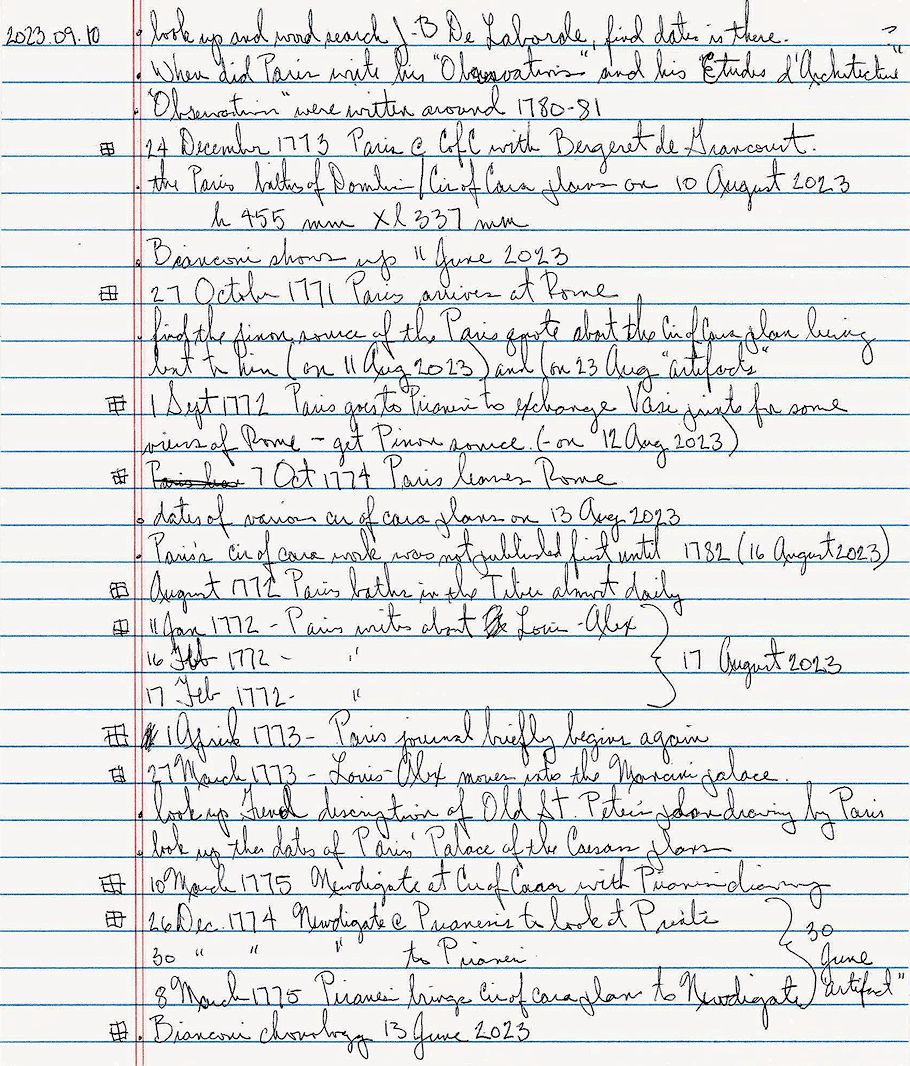 2023.09.10 · look up and word search J-B De Laborde, find dates is there.
· When did Paris write his "Observations" and his "Etudes d'Architecture"
· "Observations" were written around 1780-81
24 December 1773 Paris @ CofC with Bergeret de Grancourt.
· the Paris baths of Domitian / Cir of Cara plans on 10 August 2023
h 455 mm x l 337 mm
· Bianconi shows up 11 June 2023
27 October 1771 Paris arrives at Rome
· find the Pinon source of the Paris quote about the Cir of Cara plan being
lent to him (on 11 Aug 2023) and (on 23 Aug "artifacts"
1 Sept 1772 Paris goes to Piranesi to exchange Vasi prints for some
views of Rome - get Pinon source. (- on 12 Aug 2023)
7 Oct 1774 Paris leaves Rome
· dates of various cir of cara plans on 13 Aug 2023
· Paris's cir of cara work was not published first until 1782 (16 August 2023)
August 1772 Paris baths in the Tiber almost daily
11 Jan 1772 - Paris writes about Louis-Alex
16 Feb 1772 - "
17 Feb 1772 - "
17 August 2023
1 April 1773 - Paris journal briefly begins again
27 March 1773 - Louis-Alex moves into the Mancini palace.
· look up description of Old St. Peter's plan drawing by Paris
· look up the dates of Paris' Palace of the Caesars plans
10 March 1775 Newdigate at Cir of Cara with Piranesi drawing
26 Dec. 1774 Newdigate @ Piranesi's to look at Prints
30 " " " to Piranesi
8 March 1775 Piranesi brings Cir of cara plan to Newdigate
30 June "artifact"
· Bianconi chonology 13 June 2023